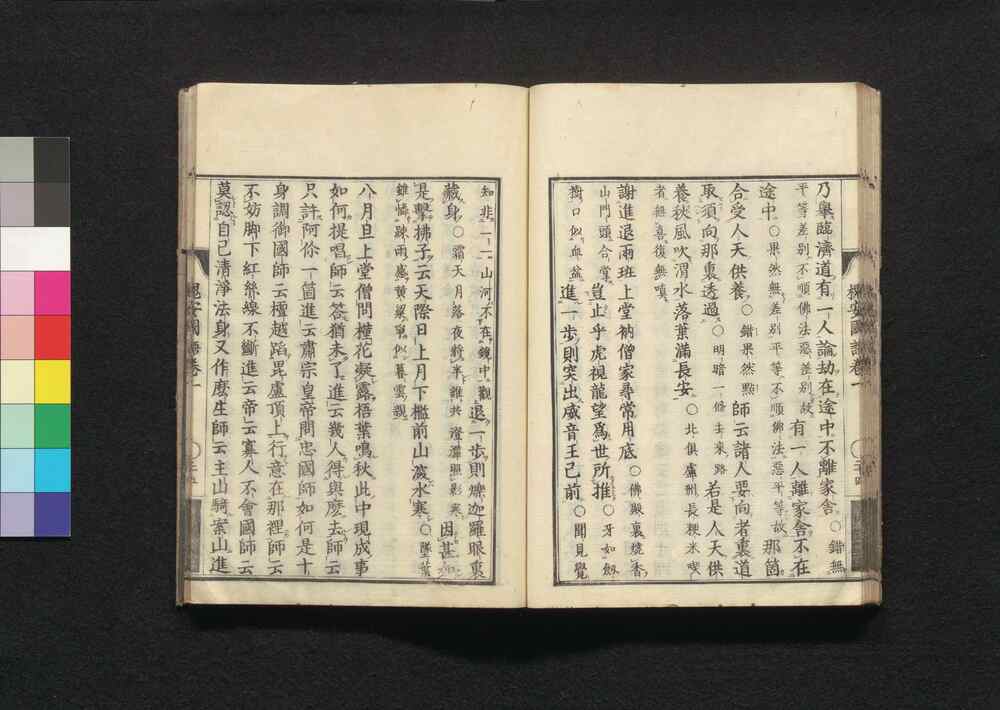 乃擧臨濟道有一人論劫在途中不離家舍〇錯無
平等差別不順佛法惡差別故有一人離家舍不在
途中〇果然無差別平等不順佛法惡平等故那箇
合受人天供養〇錯果然點師云諸人要向者裏道
取須向那裏透過〇明暗一條去來路若是人天供
養秋風吹渭水落葉滿長安〇北俱盧洲長粳米喫
者無喜復無嗔
謝進退兩班上堂衲僧家尋常用底〇佛殿裏燒香
山門頭合掌豈止乎虎視龍望爲世所推〇牙如劒
樹口似血盆進一步則突出威音王已前〇聞見覺
知非一一山河不在鏡中觀退一步則爍迦羅眼裏
藏身〇霜天月落夜將半誰共澄潭照影寒因甚
是擊拂子云天際日上月下檻前山深水寒〇墜葉
雖憐疎雨感黃粱爭似暮雲親
八月旦上堂僧問槿花凝露梧葉鳴秋此中現成事
如何提唱師云答猶未了進云幾人得與麼去師云
只許阿你一箇進云肅宗皇帝問忠國師如何是十
身調御國師云檀越蹈毘盧頂上行意在那裡師云
不妨脚下紅絲線不斷進云帝云寡人不會國師云
莫認自己清淨法身又作麼生師云主山騎案山進
槐安國語卷一